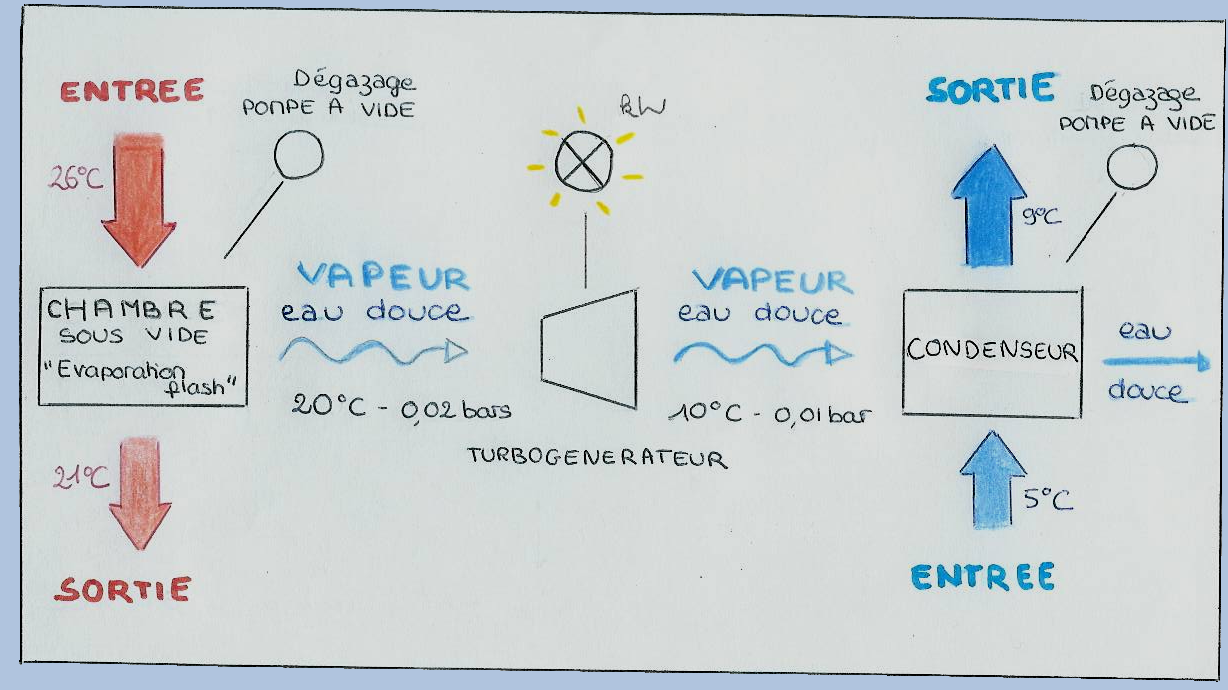 ENTREE
26°C
Dégazage
POMPE A VIDE
CHAMBRE
SOUS VIDE
"Evaporation
flash"
21°C
SORTIE
VAPEUR
eau douce
20°C - 0,02 bars
kW
TURBOGENERATEUR
VAPEUR
eau douce
10°C - 0,01 bar
SORTIE
9°C
Dégazage
POMPE A VIDE
CONDENSEUR
eau
douce
5°C
ENTREE